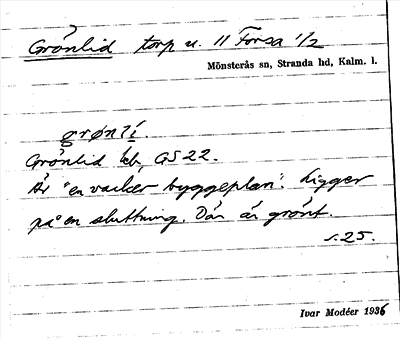 Grönlid torp u. 11 Forsa 1/2
Mönsterås sn, Stranda hd, Kalm. l.
grønlí.
Grönlid kb, GS 22.
Är "en vacker byggeplan". Ligger
på en sluttning. Där är grönt.
s. 25.
Ivar Modéer 1936